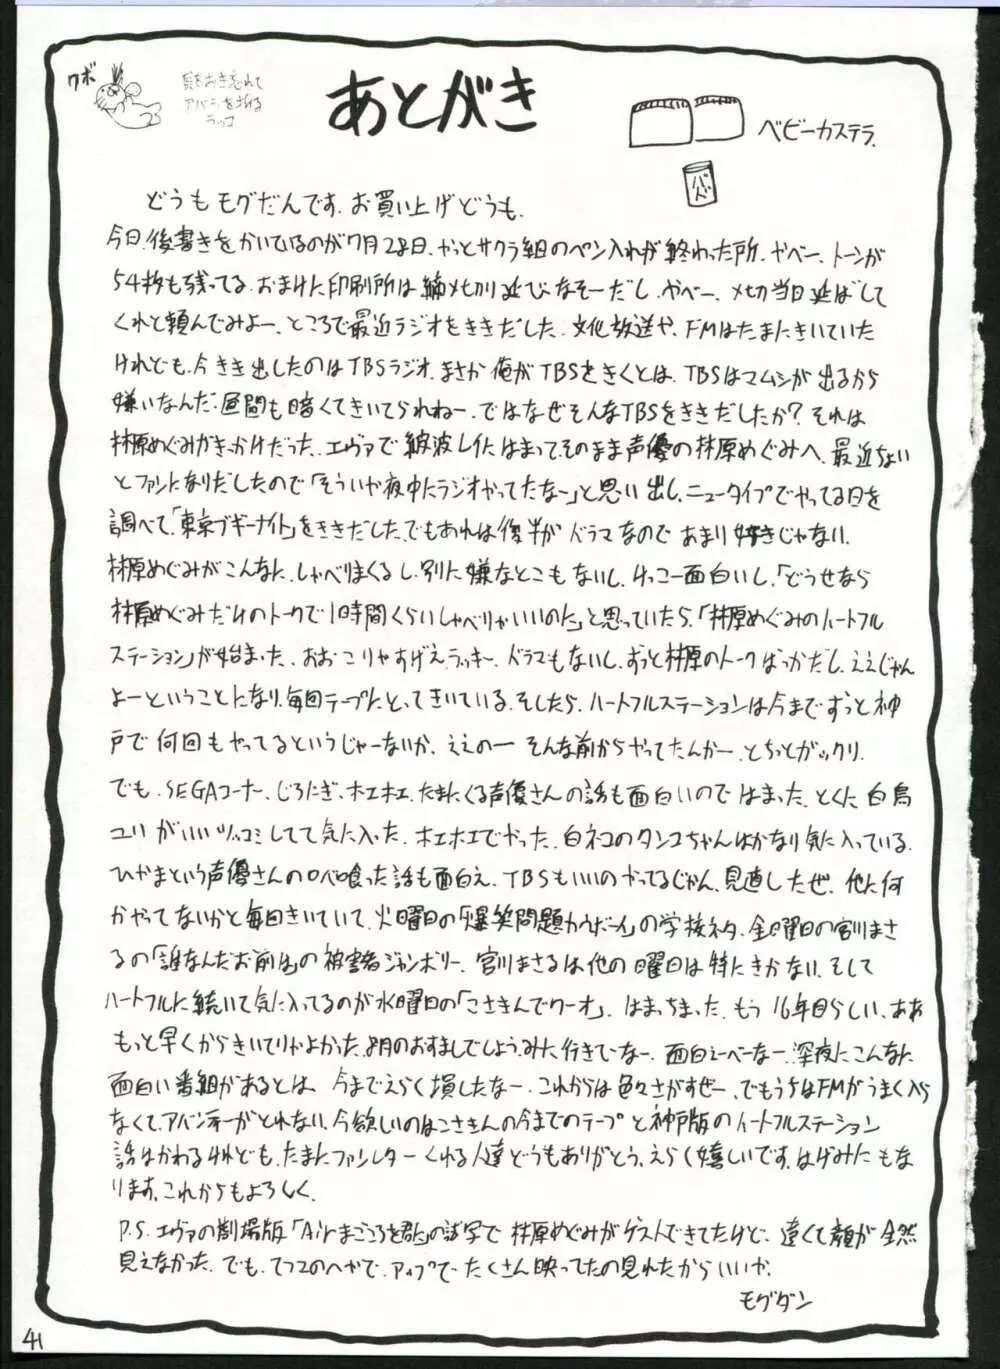 ワボ
貝をおき忘れて
アバラを折る
ラッコ
あとがき
ベビーカステラ.
どうもモグだんです.お買い上げどうも.
今日.後書きをかいているのが7月28日.やっとサクラ組のペン入れが終わった所.やべー.トーンが
54枚も残ってる.おまけに印刷所は〆メ切り延びなそーだし.やべー.メ切当日延ばして
くれと頼んでみよー.ところで最近ラジオをききだした.文化放送や.FMはたまにきいていた
けれども.今きき出したのはTBSラジオ.まさか俺がTBSをきくとは.TBSはマムシが出るから
嫌いなんだ.昼間も暗くてきいてられねー.ではなぜそんなTBSをききだしたか?それは
林原めぐみがきっかけだった.エヴァで綾波レイにはまって.そのまま声優の林原めぐみへ.最近ちょい
とファンになりだしたので「そういや夜中にラジオやってたなー」と思い出し.ニュータイプでやってる日を
調べて.「東京ブギーナイト」をききだした.でもあれは後半がドラマなのであまり好きじゃない.
林原めぐみがこんなに.しゃべりまくるし.別に嫌なとこもないし.けっこー面白いし.「どうせなら
林原めぐみだけのトークで1時間くらいしゃべりゃいいのに」と思っていたら.「林原めぐみのハートフル
ステーション」が始まった.おおこりゃすげえラッキー.ドラマもないし.ずっと林原のトークばっかだし.ええじゃん
よーということになり.毎回テープにとってきいている.そしたら.ハートフルステーションは今までずっと神
戸で何回もやってるというじゃーないか.ええのー そんな前からやってたんかー.とちっとガックリ.
でも.SEGAコーナー.じろにぎ.ホエホエ.たまにくる声優さんの話も面白いのではまった.とくに白鳥
ユリがいいツッコミしてて気に入った.ホエホエでやった.白ネコのタンゴちゃんはかなり気に入っている.
ひやまという声優さんのロベ喰った話も面白え.TBSもいいのやってるじゃん.見直したぜ.他に何
かやってないかと毎回きいていて.火曜日の「爆笑問題カウボーイ」の学校ネタ.金曜日の宮川まさ
るの「誰なんだお前は」の被害者ジャンボリー.宮川まさるは他の曜日は特にきかない.そして
ハートフルに続いて気に入ってるのが水曜日の「こさきんでワーオ」.はまっちまった.もう16年目らしい.ああ
もっと早くからきいてりゃよかった.8月のおすましでしょう.みに行きてーなー.面白えーべーなー.深夜にこんなに
面白い番組があるとは.今までえらく損したなー.これからは色々さがすぜー.でもうちはFMがうまく入ら
なくて.アバンギーがとれない.今欲しいのはこさきんの今までのテープと神戸版のハートフルステーション
話はかわるけれども.たまにファンレターくれる人達どうもありがとう.えらく嬉しいです.はげみにもな
ります.これからもよろしく.
P.S.エヴァの劇場版「Airまごころを君に」の試写で林原めぐみがゲストできてたけど.遠くて顔が全然
見えなかった.でも.てつこのへやで.アップでたくさん映ってたの見れたからいいか.
モグダン
41